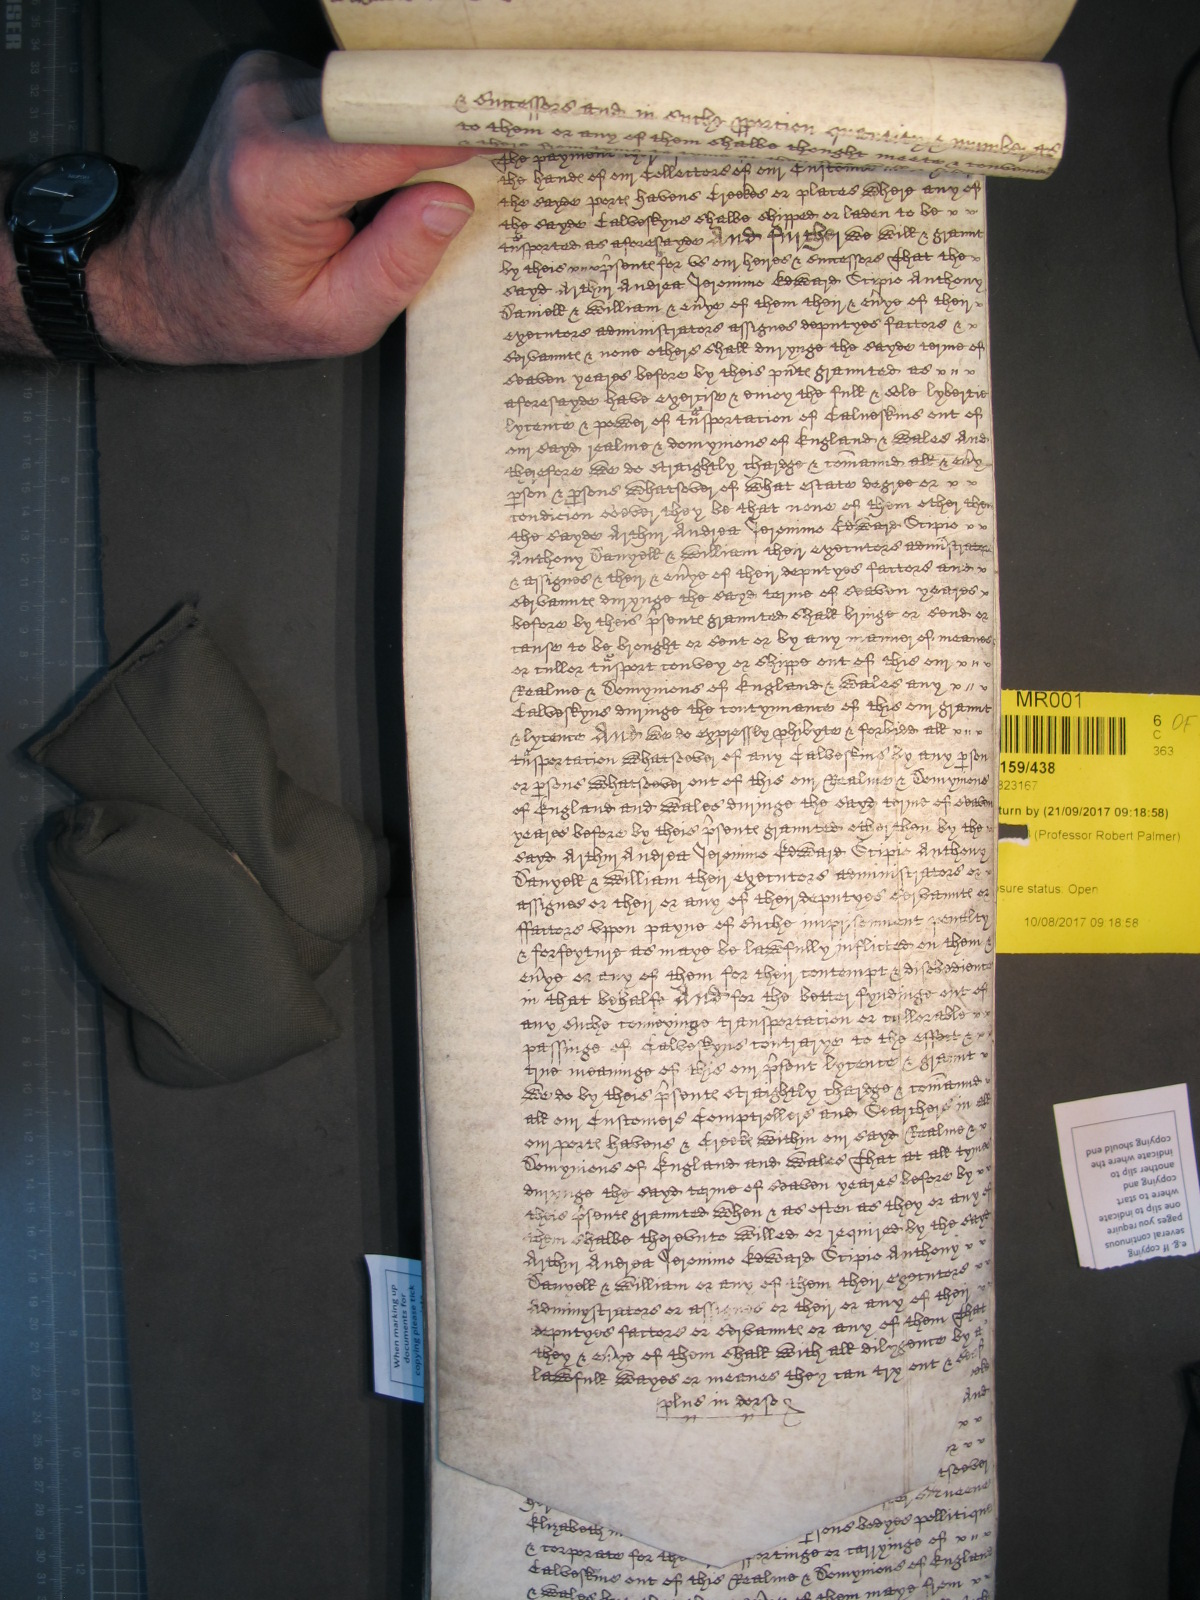 & Successors and in suche pportion quantity & number as
to them or any of them shalbe thought meete &
the payment
the hands of our Collectors of our Customs
the sayde ports havens Creekes or places where any of
the sayde Calveskyns shalbe shipped or laden to be
tnsported as aforesayde And further we will & graunt
by theis psents for us our heires & Successors That the
sayd Arthur Andrea Jeronimo Edward Scipio Anthony
Daniell & William & evye of them their & evye of their
executors administrators assignes deputyes factors &
servaunts & none others shall durynge the sayde terme of
seaven yeares before by theis pnts graunted as
aforesayde have exercise & enioy the full & sole lybertie
lycence & power of tnsportation of Calveskins out of
our sayd realme & domynions of England & Wales And
therefore we do straightly chardge & comaund all & evy
pson & psons whatsoever of what estate degree or
condicion soever they be that none of them other then
the sayde Arthur Andrea Jeronimo Edward Scipio
Anthony Danyell & William their executors admistrators
& assignes & their & evye of their deputyes factors and
servaunts durynge the sayd terme of seaven yeares
before by theis psents graunted shall bringe or send or
cause to be brought or sent or by any manner of meanes
or cullor tnsport convey or shippe out of this our
Realme & Domynions of England & Wales any
Calveskyns duringe the contynuance of this our graunt
& lycence And we do expressly phibyte & forbidd all
tnsportation whatsoever of any Calveskins by any pson
or psons whatsoever out of this our Realme & Domynions
of England and Wales duringe the sayd terme of seaven
yeares before by theis psents graunted other then by the
sayd Arthur Andrea Jeronimo Edward Scipio Anthony
Danyell & William their executors administrators or
assignes or their or any of their deputyes servaunts or
ffactors uppon payne of suche imprisonment penalty
& forfeyture as maye be lawfully inflicted on them &
evye or any of them for their contempt & disobedience
in that behalfe And for the better fyndinge out of
any suche conveyinge transportation or cullorable
passinge of Calveskyns contrarye to the effect &
true meaninge of this our psent lycence & graunt
we do by theis psents straightly chardge & comaund
all our Customers Comptrollers and Searchers in all
our ports havens & Creeks within our sayd Realme &
Domynions of England and Wales That at all tymes
durynge the sayd terme of seaven yeares before by
theis psents graunted when & as often as they or any of
them shalbe thereunto willed or required by the sayd
Arthur Andrea Jeronimo Edward Scipio Anthony
Danyell & William or any of them their executors
Administrators or assignes or their or any of their
deputyes factors or servaunts or any of them That
they & evye of them shall with all dilygence by
lawfull wayes or meanes they can try out &
plus in dorso
And
tsoever
Queene
Elizabeth
psons bodyes pollitique
& corporate for the
portinge or carryinge of
Calveskins out of this Realme & Domynions of England
& Wales
of them maye from
MR001
6
C
363
OF
159/438
823167
turn by (21/09/2017 09:18:58)
(Professor Robert Palmer)
sure status. Open
10/08/2017 09:18:58
e.g. If copying
several continuous
pages you require
one slip to indicate
where to start
copying and
another slip to
indicate where the
copying should end
When marking up
documents for
copying please tick